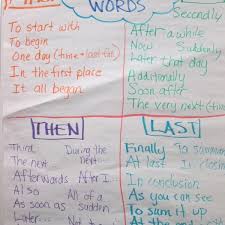 WORDS
To start with
To begin
One day (time =
In the first place
It all began
Secondly
After a while
Now Suddenly
Later that day
Additionally
Soon after
The very next (time
THEN
Third During the
The next... next...
Afterwards After I...
Also All of a
As soon as sudden
Later...
LAST
Finally To
At last In closing
In conclusion
As you can see
To sum it up
At the end